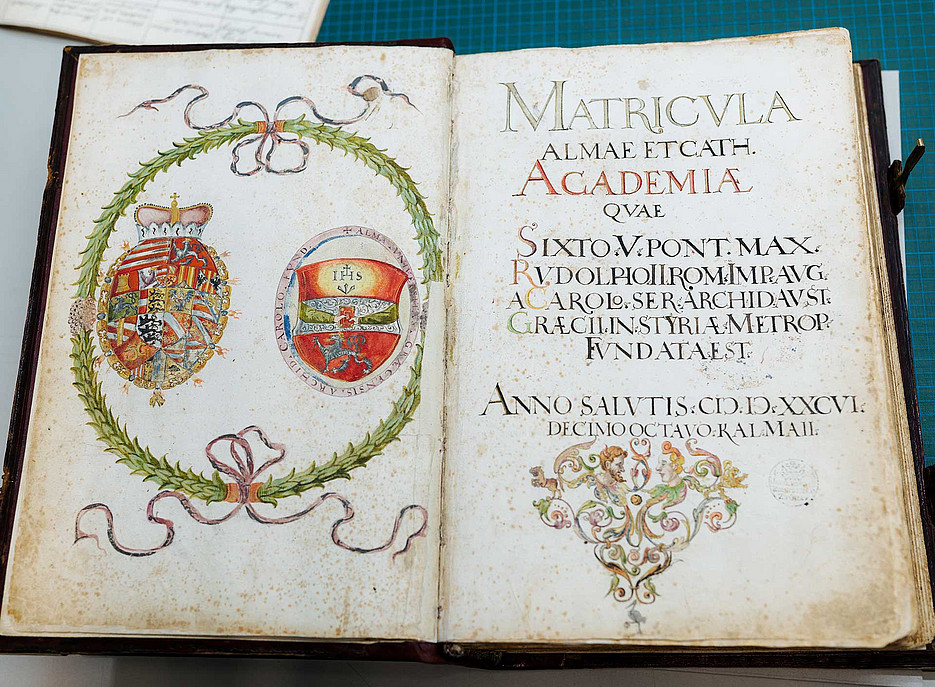 ALMA GRÆCENSIS ARCHID CAROLO FVND
IHS
MATRICVLA
ALMAE ET CATH.
ACADEMIÆ
QVAE
SIXTO.V.PONT.MAX.
RVDOLPHO.II.ROM.IMP.AVG.
A CAROLO.SER.ARCHID.AVST.
GRÆCII.IN STYRIÆ.METROP.
FVNDATA EST.
ANNO SALVTIS.CIↃ.IↃ.XXCVI.
DECIMO OCTAVO.KAL.MAII.